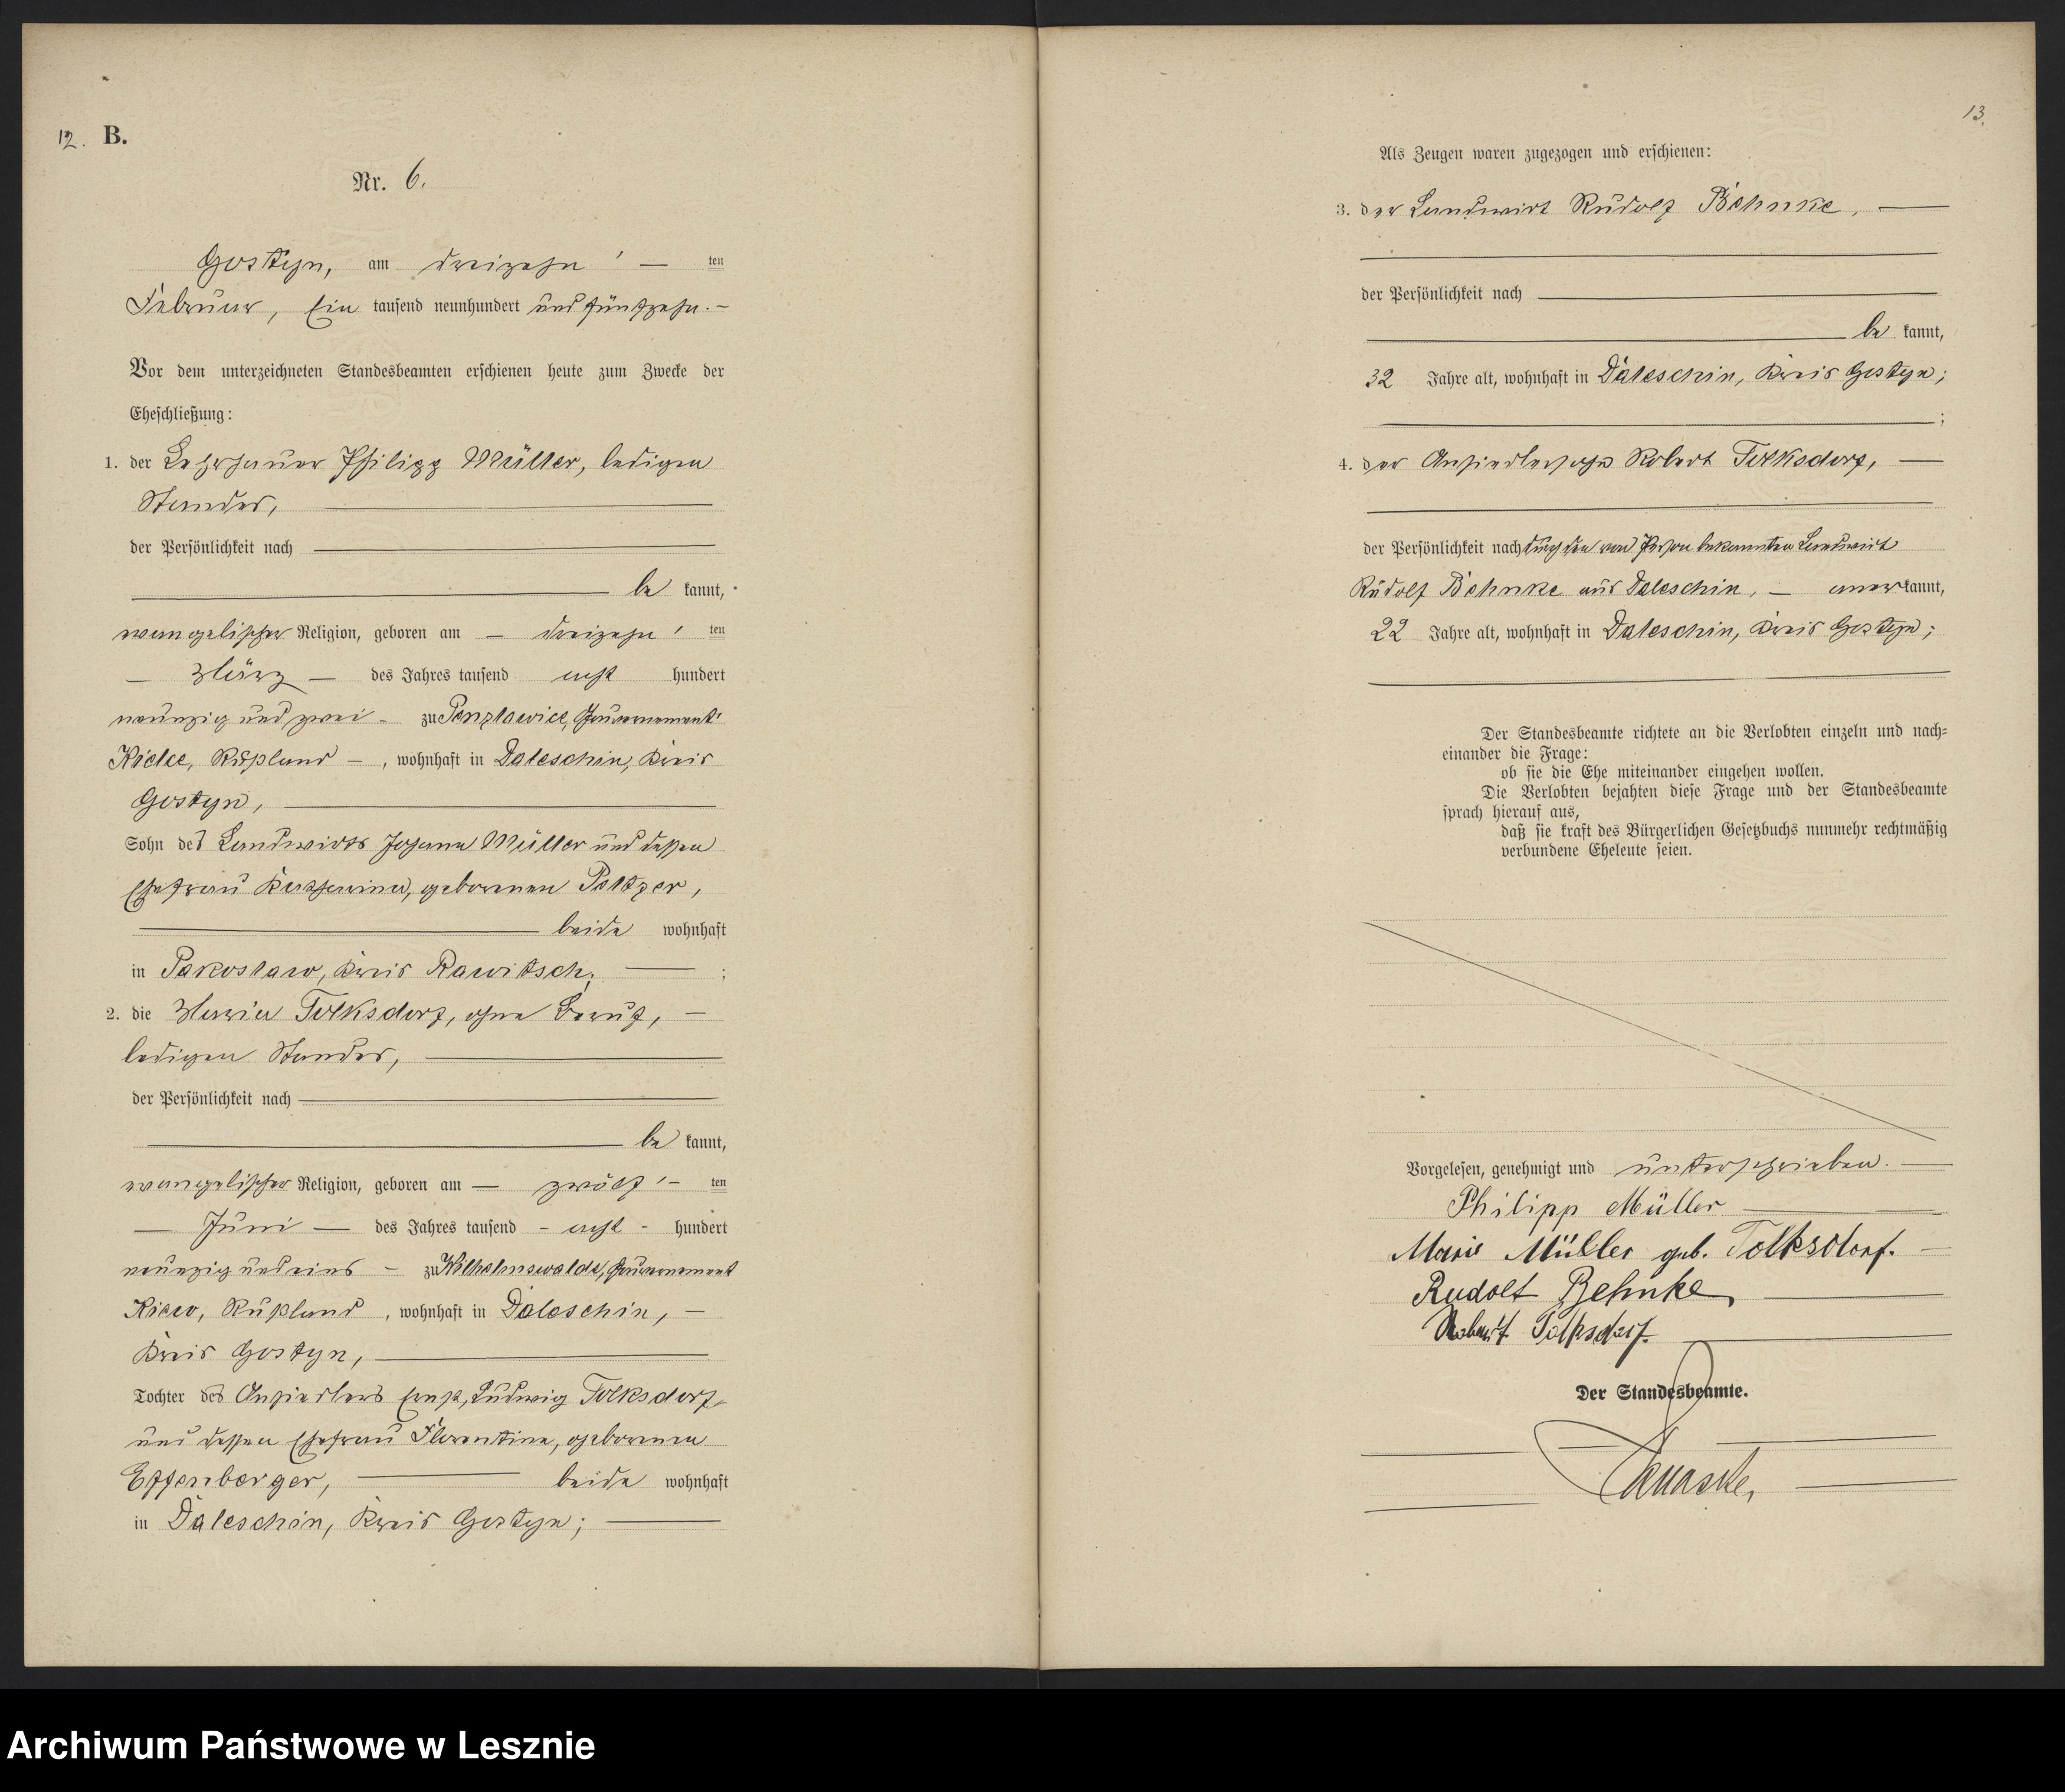 12. B.
Nr. 6.
Gostyn, am dreizehn ten
Februar, Ein tausend neunhundert und fünfzehn. –
Vor dem unterzeichneten Standesbeamten erschienen heute zum Zwecke der
Eheschließung:
1. der Lehrhauer Philipp Müller, ledigen
Standes,
der Persönlichkeit nach
be kannt,
evangelischer Religion, geboren am – dreizehn ten
– März – des Jahres tausend acht hundert
neunzig und zwei – zu Penzlawice, Gouvernement
Kielce, Rußland –, wohnhaft in Daleschin, Kreis
Gostyn,
Sohn des Landwirts Johann Müller und dessen
Ehefrau Katharina, geborenen Peltzer,
beide wohnhaft
in Pakoslaw, Kreis Rawitsch; – ;
2. die Maria Tolksdorf, ohne Beruf, –
ledigen Standes,
der Persönlichkeit nach
be kannt,
evangelischer Religion, geboren am – zwölf – ten
– Juni – des Jahres tausend – acht – hundert
neunzig und eins – zu Wilhelmswalde, Gouvernement
Kiew, Rußland, wohnhaft in Daleschin, –
Kreis Gostyn,
Tochter des Ansiedlers Ernst, Ludwig Tolksdorf
und dessen Ehefrau Florentine, geborenen
Effenberger, beide wohnhaft
in Daleschin, Kreis Gostyn;
13.
Als Zeugen waren zugezogen und erschienen:
3. der Landwirt Rudolf Behnke,
der Persönlichkeit nach
be kannt,
32 Jahre alt, wohnhaft in Daleschin, Kreis Gostyn;
;
4. der Ansiedlersohn Robert Tolksdorf,
der Persönlichkeit nach durch den von Person bekannten Landwirt
Rudolf Behnke aus Daleschin, – anerkannt,
22 Jahre alt, wohnhaft in Daleschin, Kreis Gostyn;
Der Standesbeamte richtete an die Verlobten einzeln und nach-
einander die Frage:
ob sie die Ehe miteinander eingehen wollen.
Die Verlobten bejahten diese Frage und der Standesbeamte
sprach hierauf aus,
daß sie kraft des Bürgerlichen Gesetzbuchs nunmehr rechtmäßig
verbundene Eheleute seien.
Vorgelesen, genehmigt und unterschrieben.
Philipp Müller
Marie Müller geb. Tolksdorf.
Rudolf Behnke
Robert Tolksdorf.
Der Standesbeamte.
Archiwum Państwowe w Lesznie